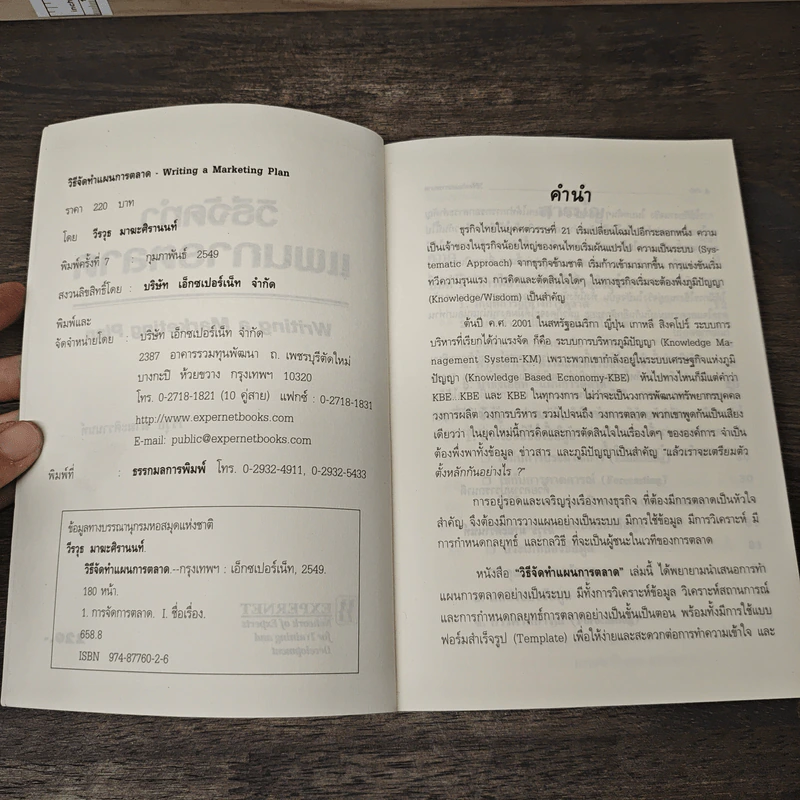 วิธีจัดทำแผนการตลาด - Writing a Marketing Plan
ราคา 220 บาท
โดย วีรวุธ มาฆะศิรานนท์
พิมพ์ครั้งที่ 7 กุมภาพันธ์ 2549
สงวนลิขสิทธิ์โดย : บริษัท เอ็กซเปอร์เน็ท จำกัด
พิมพ์และ
จัดจำหน่ายโดย : บริษัท เอ็กซเปอร์เน็ท จำกัด
2387 อาคารรวมทุนพัฒนา ถ. เพชรบุรีตัดใหม่
บางกะปิ ห้วยขวาง กรุงเทพฯ 10320
โทร. 0-2718-1821 (10 คู่สาย) แฟกซ์ : 0-2718-1831
http://www.expernetbooks.com
E-mail: public@expernetbooks.com
พิมพ์ที่ : ธรรกมลการพิมพ์ โทร. 0-2932-4911, 0-2932-5433
ข้อมูลทางบรรณานุกรมหอสมุดแห่งชาติ
วีรวุธ มาฆะศิรานนท์.
วิธีจัดทำแผนการตลาด.--กรุงเทพฯ : เอ็กซเปอร์เน็ท, 2549.
180 หน้า.
1. การจัดการตลาด. I. ชื่อเรื่อง.
658.8
ISBN 974-87760-2-6
คำนำ
ธุรกิจไทยในยุคศตวรรษที่ 21 เริ่มเปลี่ยนโฉมไปอีกระลอกหนึ่ง ความ
เป็นเจ้าของในธุรกิจน้อยใหญ่ของคนไทยเริ่มผันแปรไป ความเป็นระบบ (Sys-
tematic Approach) จากธุรกิจข้ามชาติ เริ่มก้าวเข้ามามากขึ้น การแข่งขันเริ่ม
ทวีความรุนแรง การคิดและตัดสินใจใดๆ ในทางธุรกิจเริ่มจะต้องพึ่งภูมิปัญญา
(Knowledge/Wisdom) เป็นสำคัญ
ต้นปี ค.ศ. 2001 ในสหรัฐอเมริกา ญี่ปุ่น เกาหลี สิงคโปร์ ระบบการ
บริหารที่เรียกได้ว่าแรงจัด ก็คือ ระบบการบริหารภูมิปัญญา (Knowledge Ma-
nagement System-KM) เพราะพวกเขากำลังอยู่ในระบบเศรษฐกิจแห่งภูมิ
ปัญญา (Knowledge Based Ecnonomy-KBE) หันไปทางไหนก็มีแต่คำว่า
KBE...KBE และ KBE ในทุกวงการ ไม่ว่าจะเป็นวงการพัฒนาทรัพยากรบุคคล
วงการผลิต วงการบริหาร รวมไปจนถึง วงการตลาด พวกเขาพูดกันเป็นเสียง
เดียวว่า ในยุคใหม่นี้การคิดและการตัดสินใจในเรื่องใดๆ ขององค์การ จำเป็น
ต้องพึ่งพาทั้งข้อมูล ข่าวสาร และภูมิปัญญาเป็นสำคัญ "แล้วเราจะเตรียมตัว
ตั้งหลักกันอย่างไร ?"
การอยู่รอดและเจริญรุ่งเรืองทางธุรกิจ ที่ต้องมีการตลาดเป็นหัวใจ
สำคัญ จึงต้องมีการวางแผนอย่างเป็นระบบ มีการใช้ข้อมูล มีการวิเคราะห์ มี
การกำหนดกลยุทธ์ และกลวิธี ที่จะเป็นผู้ชนะในเวทีของการตลาด
หนังสือ "วิธีจัดทำแผนการตลาด" เล่มนี้ ได้พยายามนำเสนอการทำ
แผนการตลาดอย่างเป็นระบบ มีทั้งการวิเคราะห์ข้อมูล วิเคราะห์สถานการณ์
และการกำหนดกลยุทธ์การตลาดอย่างเป็นขั้นเป็นตอน พร้อมทั้งมีการใช้แบบ
ฟอร์มสำเร็จรูป (Template) เพื่อให้ง่ายและสะดวกต่อการทำความเข้าใจ และ